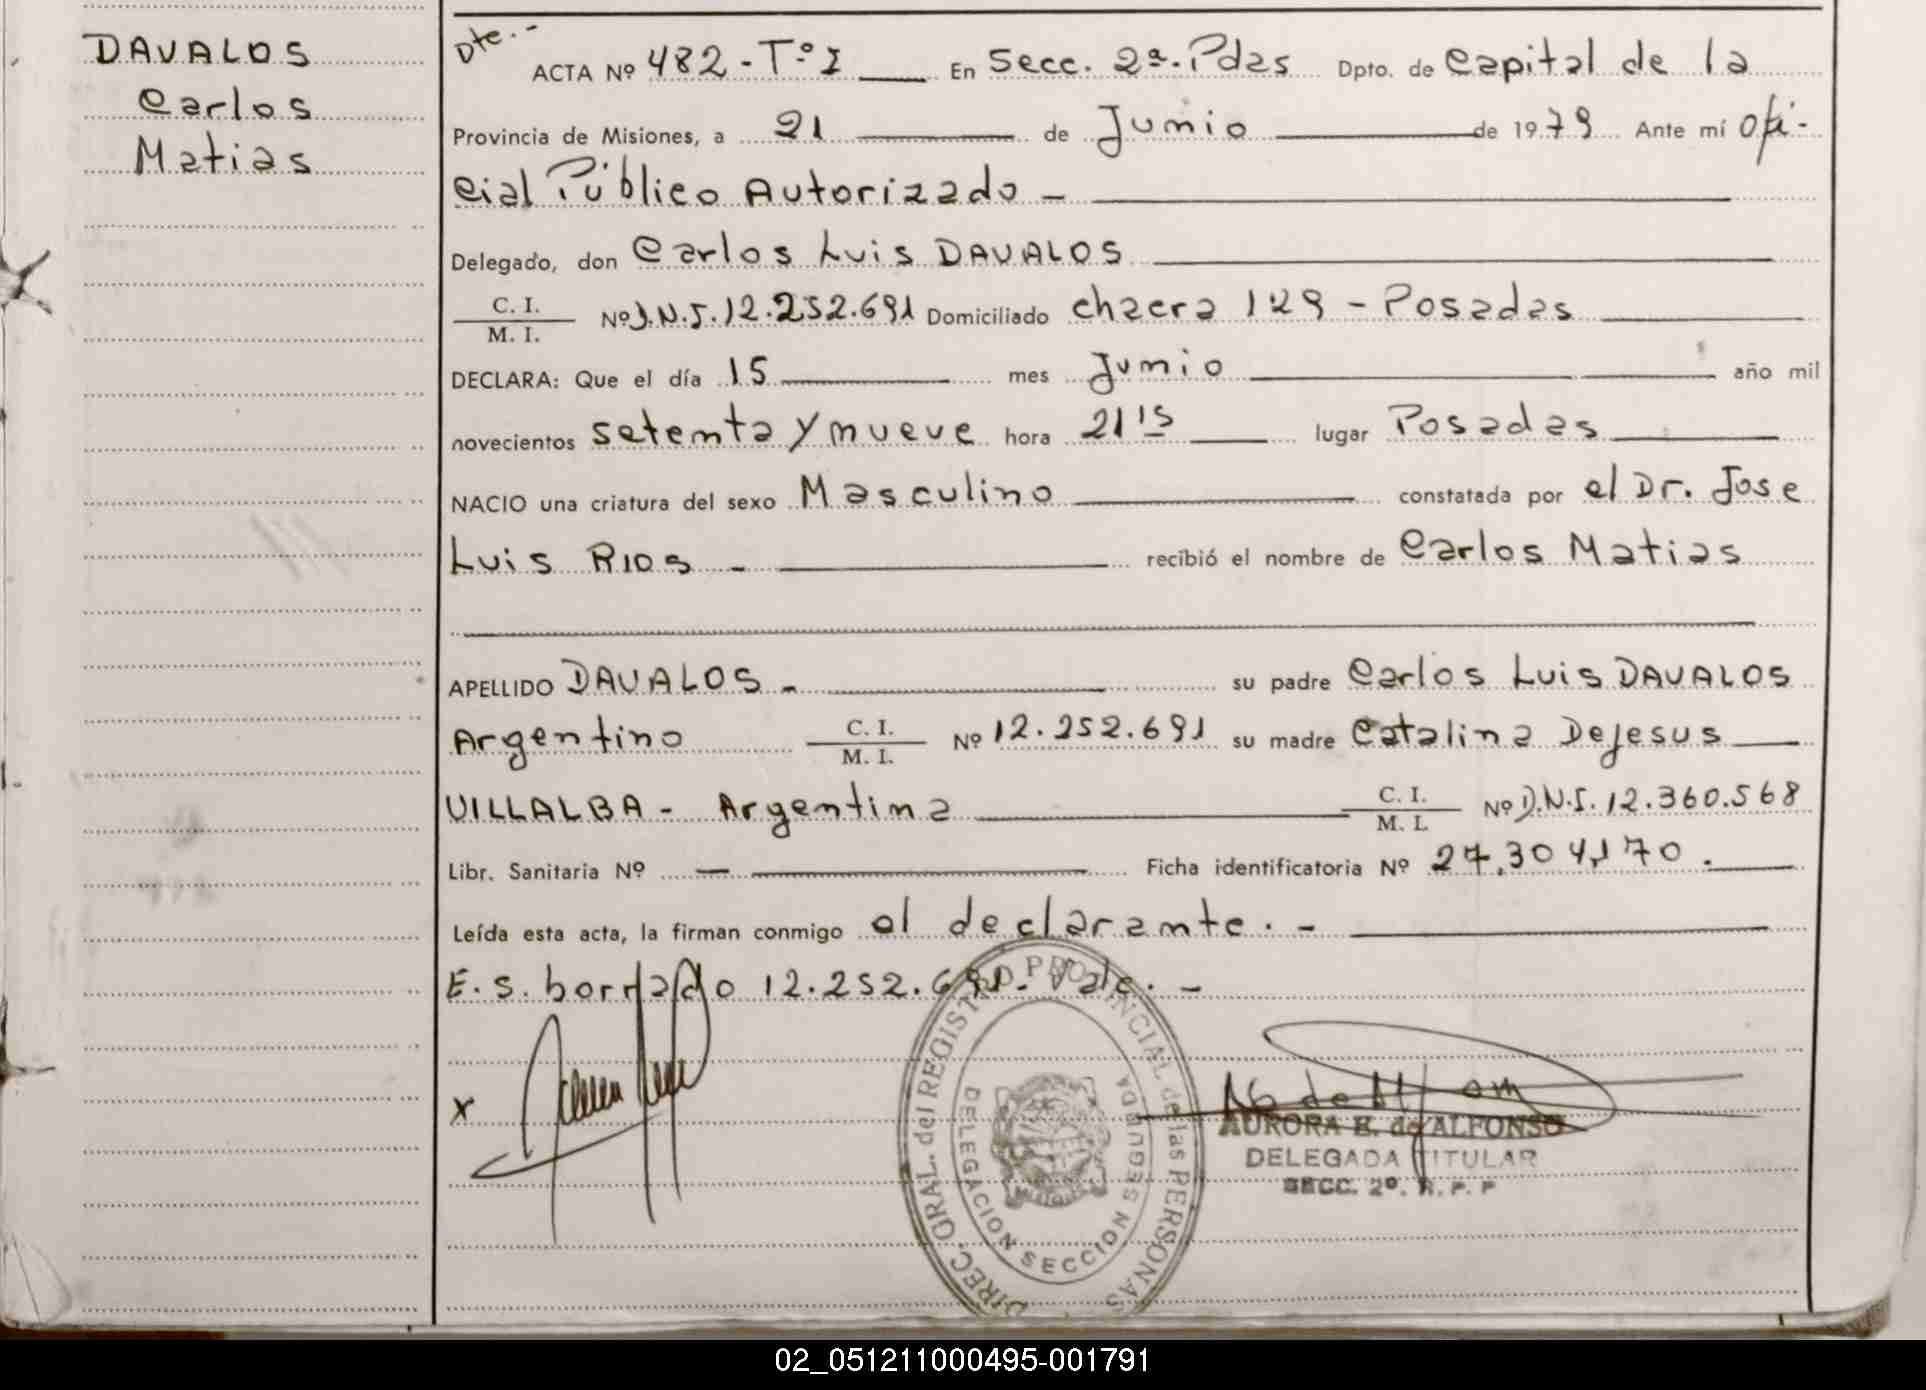 DAVALOS
Carlos
Matias
Dte.-
ACTA Nº 482 - Tº I En Secc. 2ª. Pdas Dpto. de Capital de la
Provincia de Misiones, a 21 de Junio de 1979 Ante mí Ofi-
cial Público Autorizado -
Delegado, don Carlos Luis DAVALOS
C. I.
M. I. Nº D.N.I. 12.252.691 Domiciliado chacra 129 - Posadas
DECLARA: Que el día 15 mes Junio año mil
novecientos setenta y nueve hora 21 15 lugar Posadas
NACIO una criatura del sexo Masculino constatada por el Dr. Jose
Luis RIOS - recibió el nombre de Carlos Matias
APELLIDO DAVALOS - su padre Carlos Luis DAVALOS
Argentino C. I.
M. I. Nº 12.252.691 su madre Catalina Dejesus
VILLALBA - Argentina C. I.
M. I. Nº D.N.I. 12.360.568
Libr. Sanitaria Nº — Ficha identificatoria Nº 27.304.170.
Leída esta acta, la firman conmigo el declarante. -
E. s. borrado 12.252.691. Vale. -
x
DIREC. GRAL. del REGISTRO PROVINCIAL de las PERSONAS
DELEGACION SECCION SEGUNDA
AURORA E. de ALFONSO
DELEGADA TITULAR
SECC. 2º. R. P. P
02_051211000495-001791